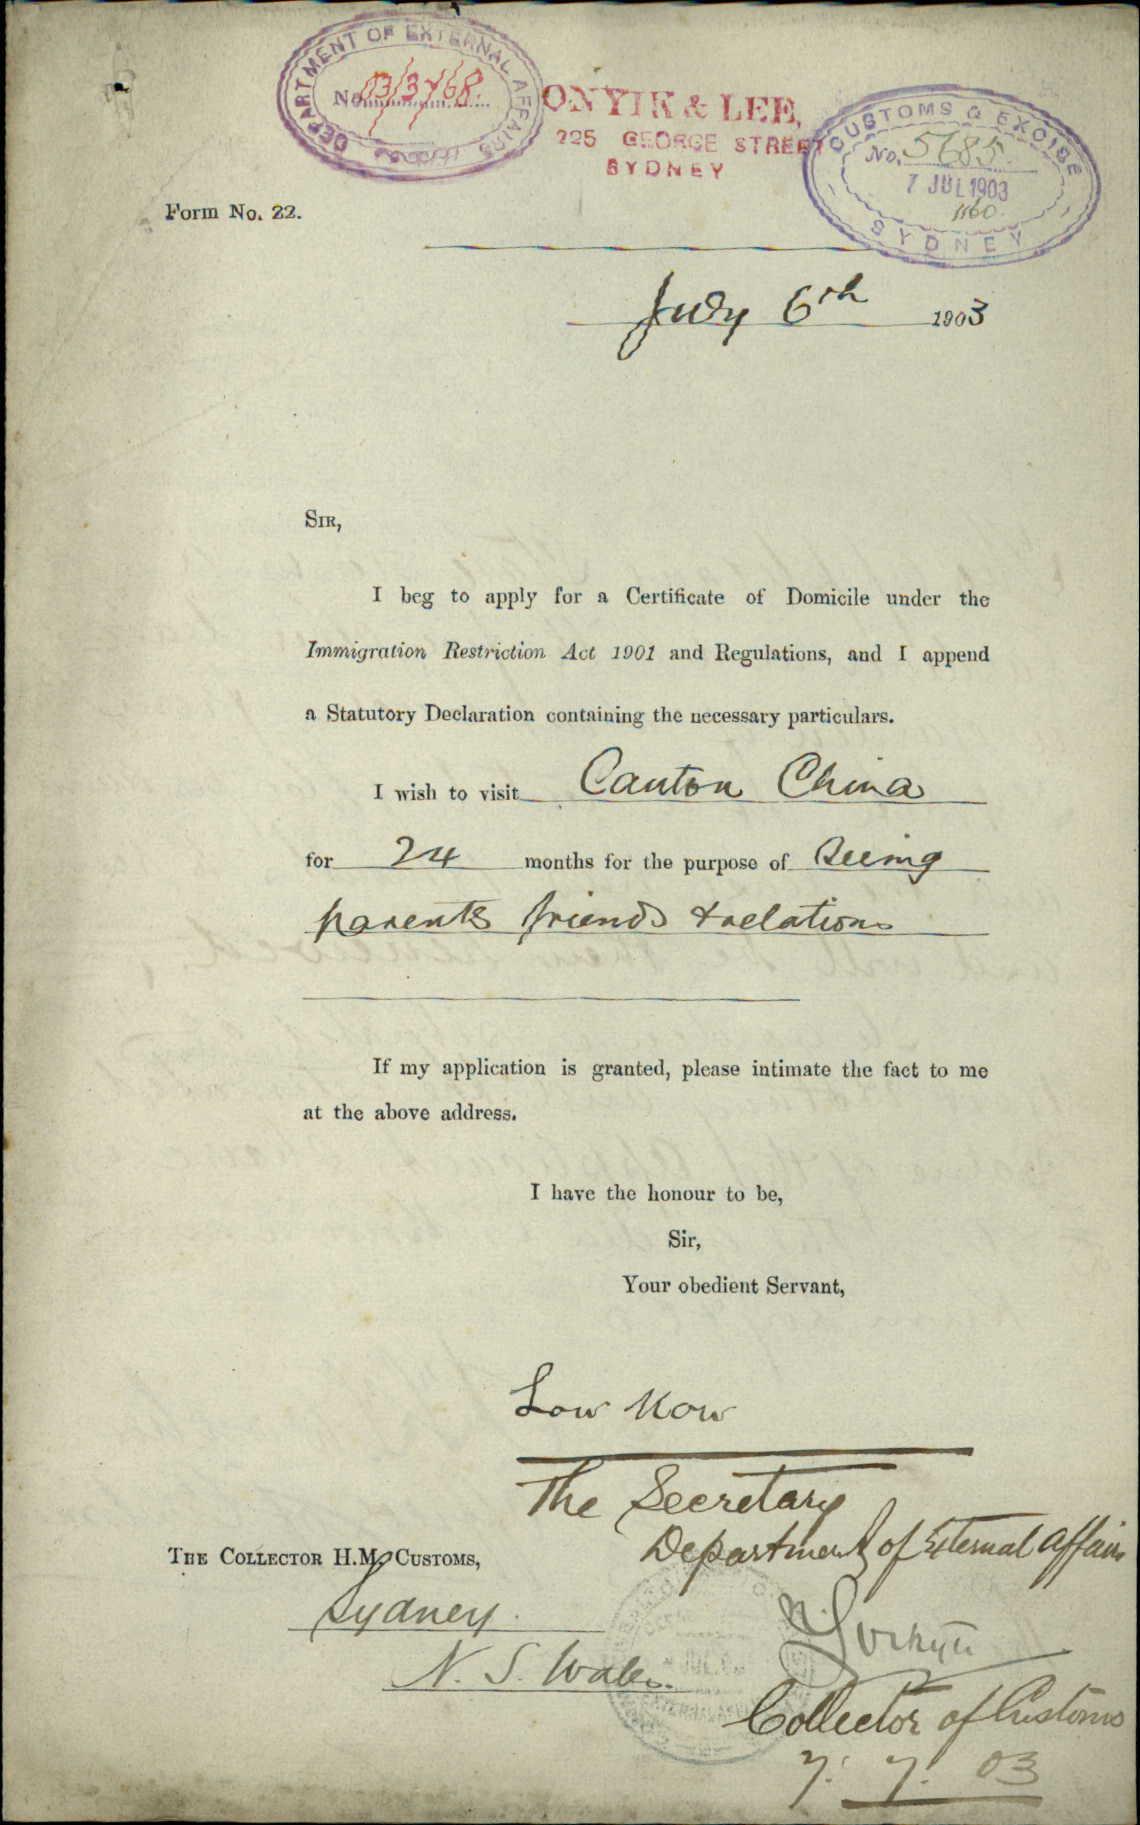 DEPARTMENT OF EXTERNAL AFFAIRS
No. 03/3768.
ON YIK & LEE,
225 GEORGE STREET
SYDNEY
CUSTOMS & EXCISE
No. 5685
7 JUL 1903
1160.
SYDNEY
Form No. 22.
July 6th 1903
SIR,
I beg to apply for a Certificate of Domicile under the
Immigration Restriction Act 1901 and Regulations, and I append
a Statutory Declaration containing the necessary particulars.
I wish to visit Canton China
for 24 months for the purpose of Seeing
parents friends & relations
If my application is granted, please intimate the fact to me
at the above address.
I have the honour to be,
Sir,
Your obedient Servant,
Low Kow
The Secretary
Department of External Affairs
THE COLLECTOR H.M. CUSTOMS,
Sydney.
N. S. Wales.
Collector of Customs
7. 7. 03